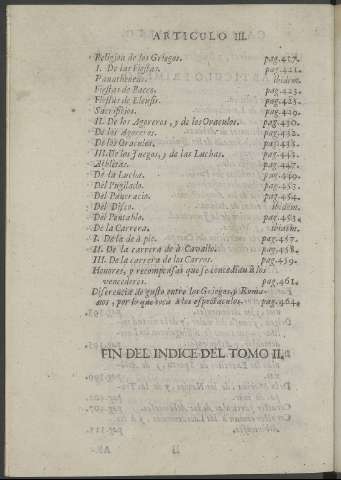 ARTICULO III.
Religion de los Griegos. pag.417.
I. De las Fiestas. pag.421.
Panatheneas. ibidem.
Fiestas de Bacco. pag.423.
Fiestas de Eleusis. pag.425.
Sacrificios. pag.429.
II. De los Agoreros, y de los Oraculos. pag.430.
De los Agoreros. pag.432.
De los Oraculos. pag.438.
III. De los Juegos, y de las Luchas. pag.443.
Athletas. pag.447.
De la Lucha. pag.449.
Del Pugilado. pag.453.
Del Pancracio. pag.454.
Del Disco. ibidem.
Del Pentatlo. pag.455.
De la Carrera. ibidem.
I. De la de à pie. pag.457.
II. De la carrera de à Cavallo. pag.458.
III. De la carrera de los Carros. pag.459.
Honores, y recompensas que se concedian à los
vencedores. pag.461.
Diferencia de gusto entre los Griegos, y Roma-
nos, por lo que toca à los espectaculos. pag.464.
FIN DEL INDICE DEL TOMO II.